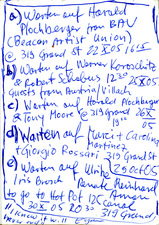 a) Warten auf Harald
Plochberger from BAU
(Beacon Artist Union)
@ 319 Grand St 22X05 1615
b) Warten auf Werner Koroschitz
& Robert Schabus 1230 25X05
Guests from Austria/Villach
c) Warten auf Harald Plochberger
& Tony Moore @ 319 Grand 26X
05
d) Warten auf Marci + Carolina
Martinez
+ Giorgio Rossari 319 Grand St
e) Warten auf Ulrike 29oct05
Iris Brosch Renate Reinhard
to go to Hot Pot 125 Canal
11, 30X05 2030
319 Grand